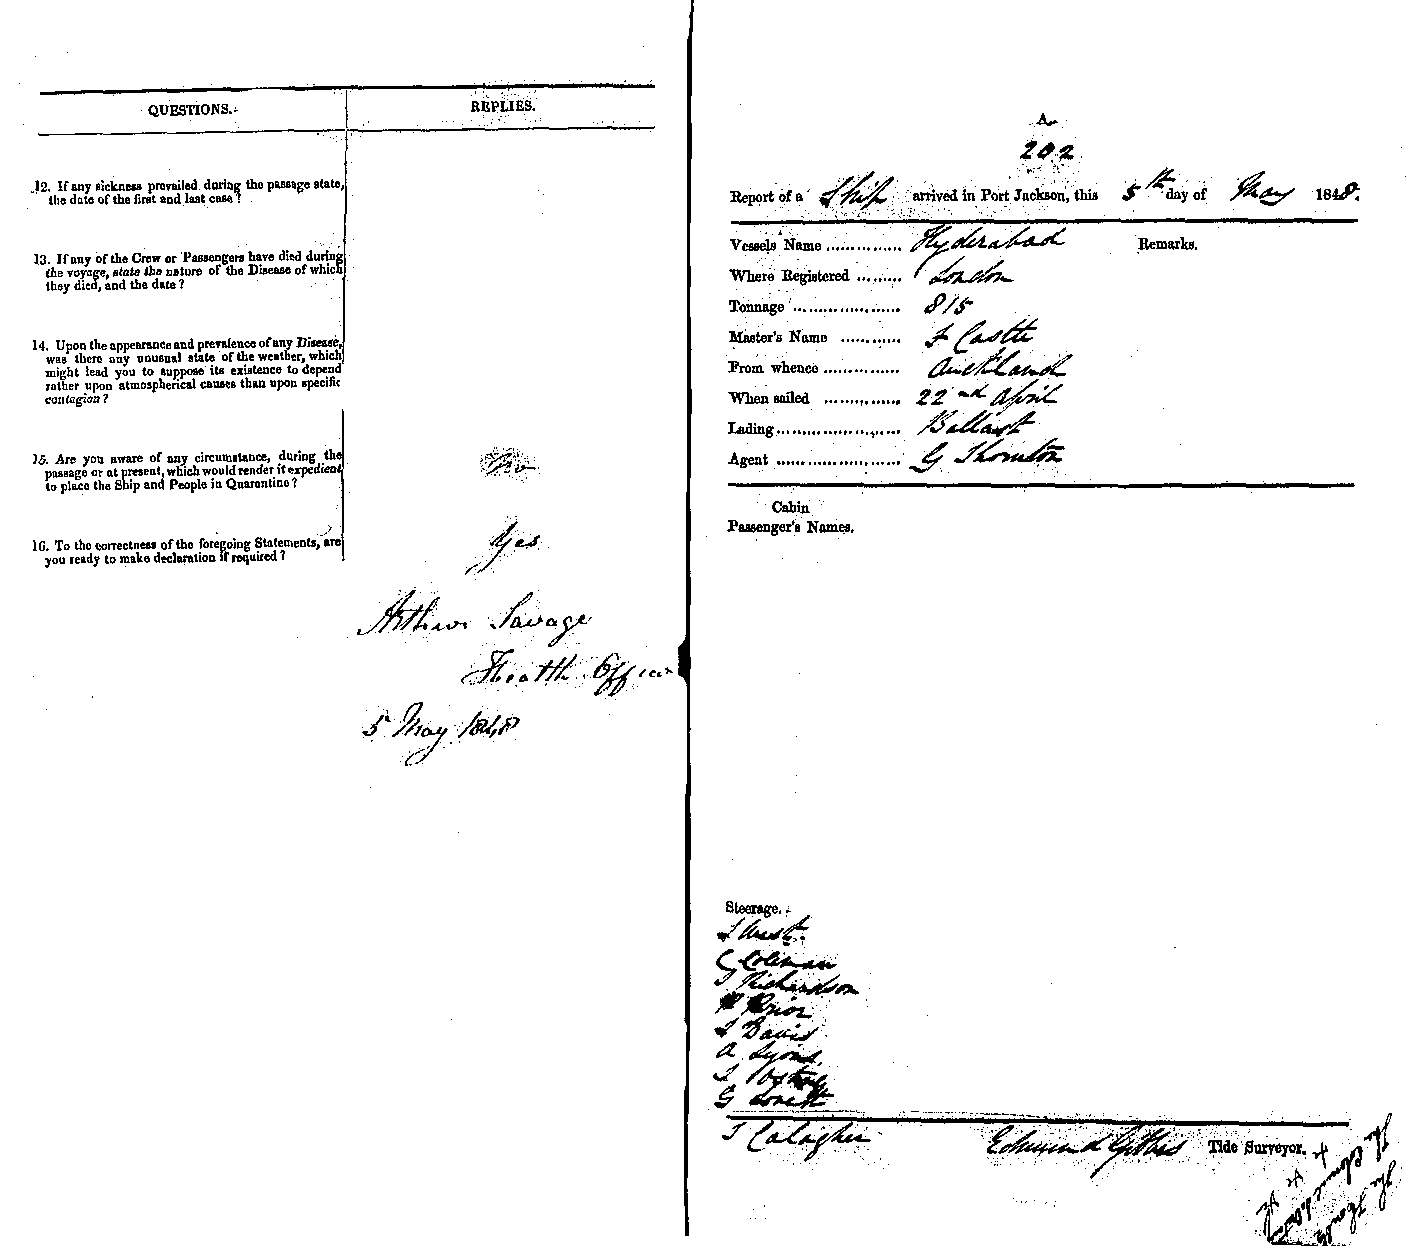 QUESTIONS.
REPLIES.
12. If any sickness prevailed during the passage state,
the date of the first and last case?
13. If any of the Crew or Passengers have died during
the voyage, state the nature of the Disease of which
they died, and the date?
14. Upon the appearance and prevalence of any Disease,
was there any unusual state of the weather, which
might lead you to suppose its existence to depend
rather upon atmospherical causes than upon specific
contagion?
15. Are you aware of any circumstance, during the
passage or at present, which would render it expedient
to place the Ship and People in Quarantine?
No
16. To the correctness of the foregoing Statements, are
you ready to make declaration if required?
Yes
Arthur Savage
Health Officer
5 May 1848
A
202
Report of a Ship arrived in Port Jackson, this 5th day of May 1848.
Vessels Name .............. Hyderabad
Remarks.
Where Registered ......... London
Tonnage ..................... 815
Master's Name ............ F Castle
From whence............... Auckland
When sailed ............... 22nd April
Lading........................ Ballast
Agent ........................ G Thornton
Cabin
Passenger's Names.
Steerage.
J West.
C Coleman
J Richardson
Prior
J Davis
A Lyons
J
G Lovett
J Calagher
Edmund Gibbes Tide Surveyor.